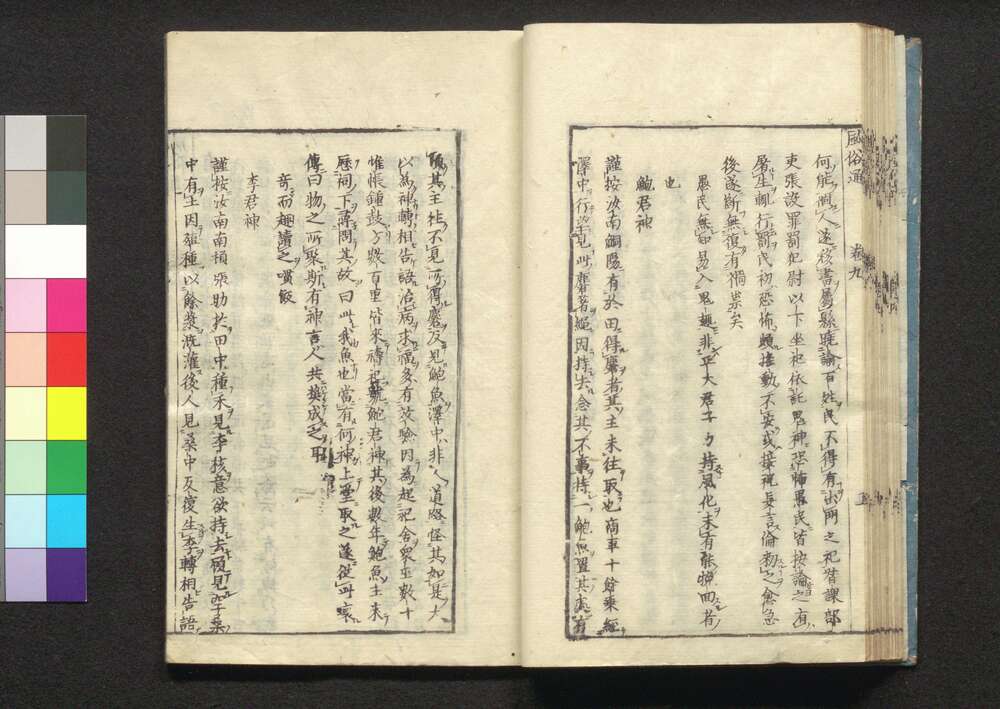 風俗通 卷九 五
何能傷人遂移書屬縣曉諭百姓民不得有出門之祀督課部
吏張設罪罰犯尉以下坐祀依託鬼神恐怖愚民皆按論之有
屠生輒行罰民初恐怖頗搖動不安或接祝妄言倫勑之愈急
後遂斷無復有禍祟矣
愚民無知易入鬼趣非平大君子力持風化未有能婦回者
也
鮑君神
謹按汝南鮦陽有於田得麞者其主未往取也商車十餘乘經
澤中行望見此麞著繩因持去念其不事持一鮑魚置其處有
頃其主往不見所得麞反見鮑魚澤中非人道路怪其如是大
以為神轉相告語治病求福多有效驗因為起祀舍眾巫數十
帷帳鍾鼓方數百里皆來禱祀號鮑君神其後數年鮑魚主來
歷祠下尋問其故曰此我魚也當有何神上堂取之遂從此壞
傳曰物之所聚斯有神言人共獎成之耳
奇而趣讀之噴飯
李君神
謹按汝南南頓張助於田中種禾見李核意欲持去顧見空桑
中有土因殖種以餘漿溉灌後人見桑中反復生李轉相告語